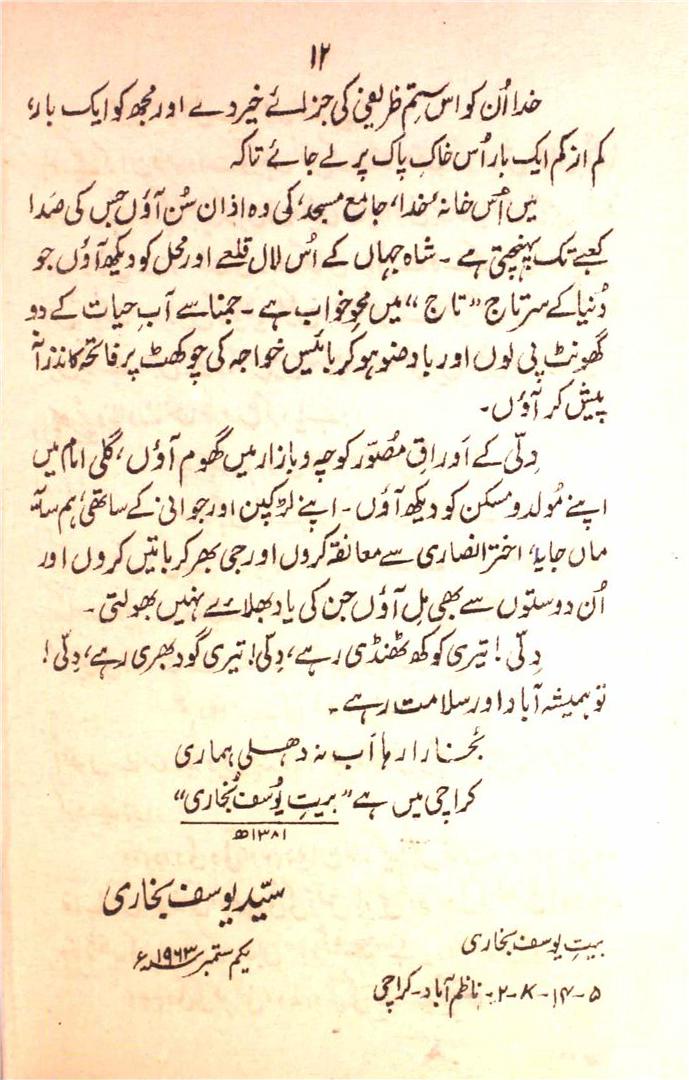 ۱۲
خدا اُن کو اس ستم ظریفی کی جزائے خیر دے اور مجھ کو ایک بار،
کم از کم ایک بار اُس خاکِ پاک پر لے جائے تاکہ
میں اُس خانۂ خدا، جامع مسجد، کی وہ اذان سُن آؤں جس کی صَدا
کعبے تک پہنچتی ہے۔ شاہ جہاں کے اُس لال قلعے اور محل کو دیکھ آؤں جو
دُنیا کے سرتاج "تاج" میں محوِ خواب ہے۔ جمنا سے آبِ حیات کے دو
گھونٹ پی لوں اور باوضو ہو کر بائیس خواجہ کی چوکھٹ پر فاتحہ کا نذرانہ
پیش کر آؤں۔
دِلّی کے اَوراقِ مُصوّر کوچہ و بازار میں گھوم آؤں، گلی امام میں
اپنے مُولد و مسکن کو دیکھ آؤں۔ اپنے لڑکپن اور جوانی کے ساتھی، ہم سایہ
ماں جایا، اختر انصاری سے معانقہ کروں اور جی بھر کر باتیں کروں اور
اُن دوستوں سے بھی مِل آؤں جن کی یاد بھلائے نہیں بھولتی۔
دِلّی! تیری کوکھ ٹھنڈی رہے، دِلّی! تیری گود بھری رہے، دِلّی!
تو ہمیشہ آباد اور سلامت رہے۔
بُخارا رہا اَب نہ دھلی ہماری
کراچی میں ہے "بیتِ یُوسف بُخاری"
۱۳۸۱ھ
سیّد یوسف بخاری
یکم ستمبر ۱۹۶۳ء
بیتِ یوسف بخاری
۵-۱۴-K-۲، ناظم آباد۔ کراچی